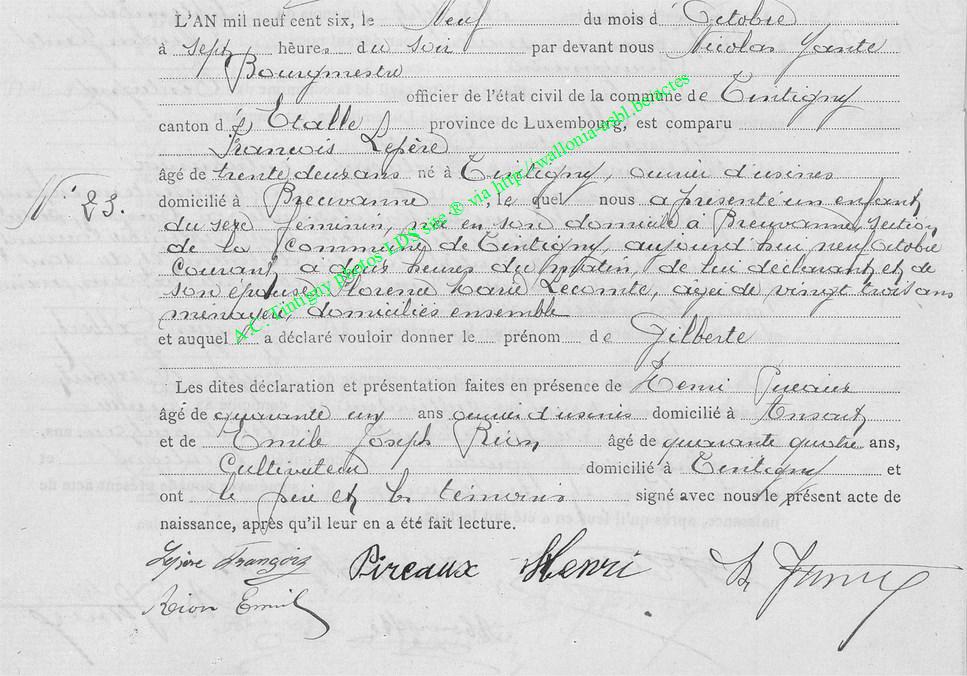 L'AN mil neuf cent six, le Neuf du mois d Octobre
à sept heures du soir par devant nous Nicolas
Bourgmestre
officier de l'état civil de la commune de Tintigny
canton d'Etalle province de Luxembourg, est comparu
François Lepère
âgé de trente deux ans né à Tintigny, ouvrier d'usines
domicilié à Breuvanne, lequel nous a présenté un enfant
N° 23.
du sexe féminin, née en son domicile à Breuvanne, section
de la commune de Tintigny, aujourd'hui neuf Octobre
courant, à deux heures du matin, de lui déclarant et de
son épouse, Florence Marie Lecomte, agée de vingt trois ans
ménagère, domiciliés ensemble
et auquel a déclaré vouloir donner le prénom de Gilberte
Les dites déclaration et présentation faites en présence de Henri
âgé de quarante un ans ouvrier d'usines domicilié à Ansart
et de Emile Joseph Rion âgé de quarante quatre ans,
Cultivateur domicilié à Tintigny et
ont le père et les témoins signé avec nous le présent acte de
naissance, après qu'il leur en a été fait lecture.
Lepère François Pireaux Henri
Rion Emile
A.C. Tintigny photos LDS site ® via http://wallonia-asbl.be/actes